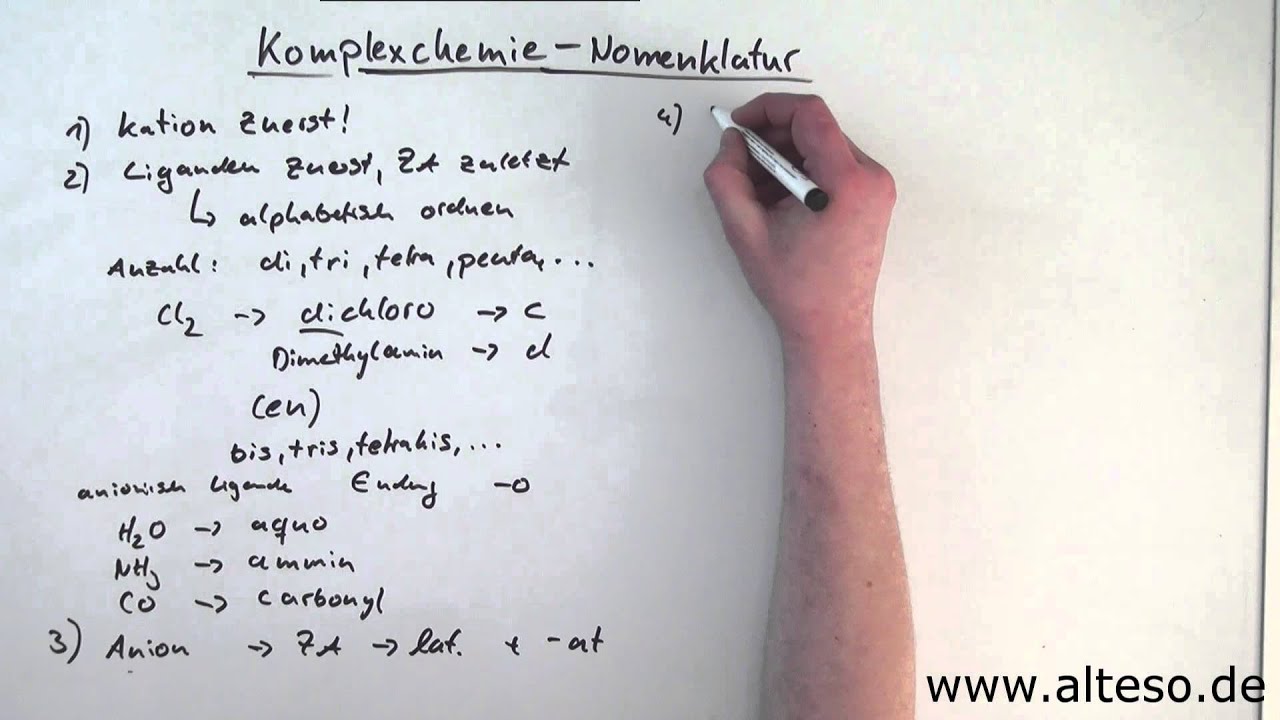 Komplexchemie – Nomenklatur
1) Kation zuerst!
2) Liganden zuerst, ZA zuletzt
↳ alphabetisch ordnen
Anzahl: di, tri, tetra, penta, ...
Cl₂ → dichloro → c
Dimethylamin → d
(en)
bis, tris, tetrakis, ...
anionisch Ligande Endung -o
H₂O → aquo
NH₃ → ammin
CO → carbonyl
3) Anion → ZA → lat. + -at
4)
www.alteso.de